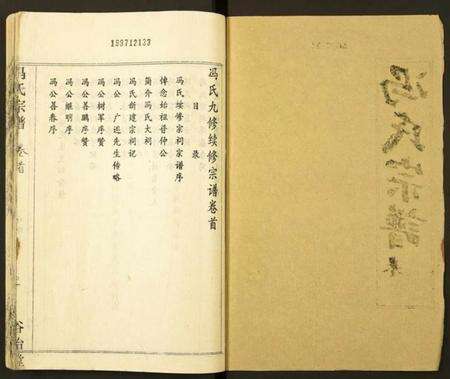 199712123
冯氏九修续修宗谱卷首
目录
冯氏续修宗祠宗谱序
悼念始祖晋仲公
简介冯氏大祠
冯氏新建宗祠记
冯公广近先生传略
冯公树军序赞
冯公善鹏序赞
冯公继明序
冯公善春序
冯氏宗谱 卷首
冯氏宗谱